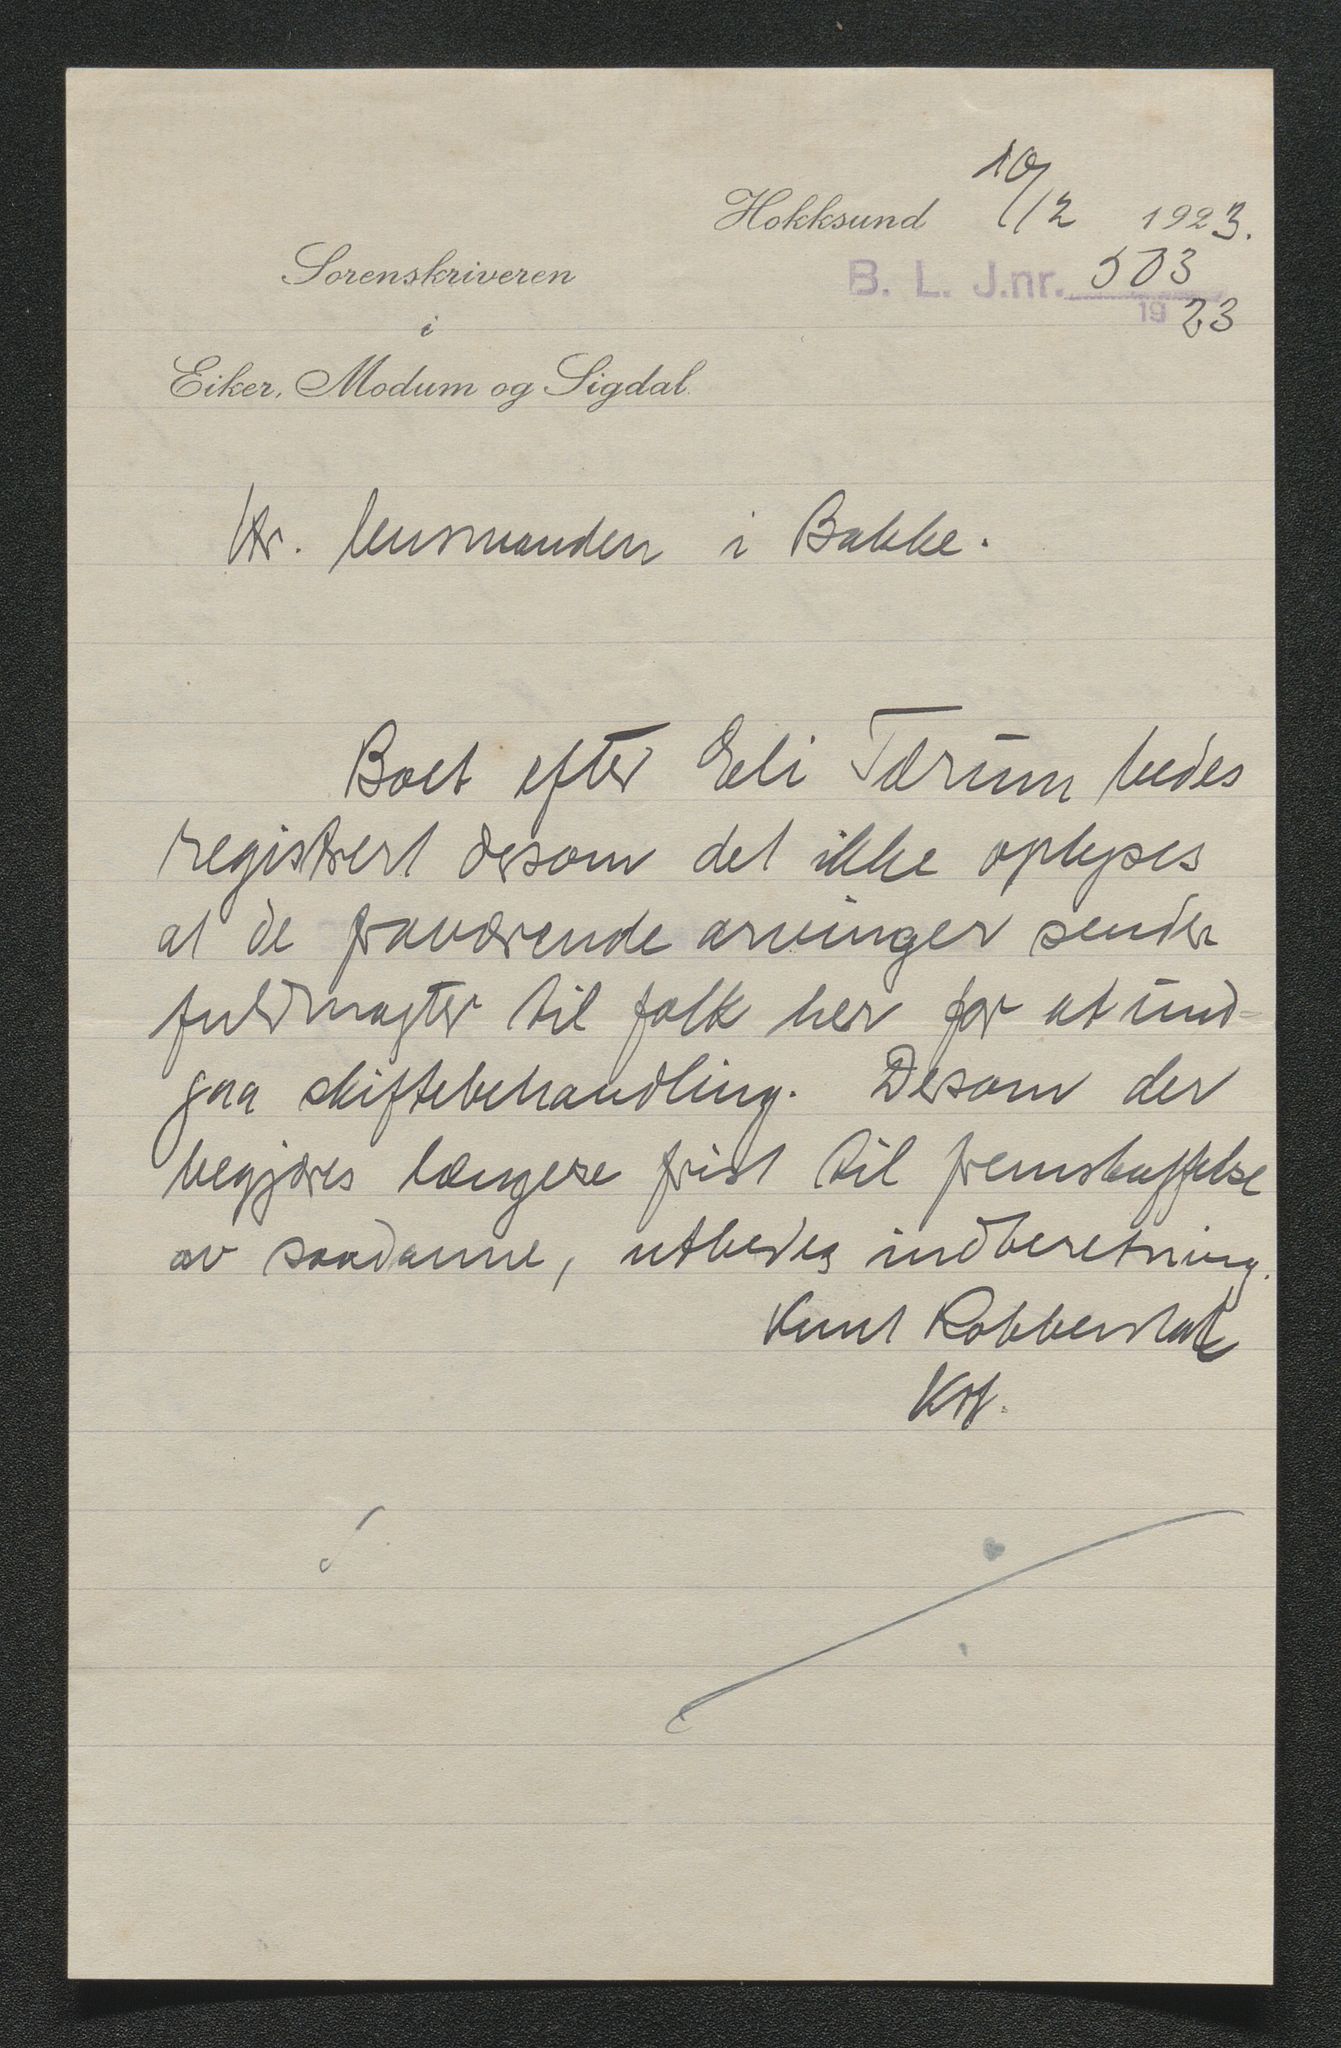 Hokksund 10/12 1923.
B. L. J.nr. 503
19 23
Sorenskriveren
i
Eiker, Modum og Sigdal.
Hr. lensmanden i Bakke.
Boet efter Eli Tærum bedes
registrert dersom det ikke oplyses
at de fraværende arvinger sender
fuldmagter til folk her for at und-
gaa skiftebehandling. Dersom der
begjæres længere frist til fremskaffelse
av saadanne, utbedes indberetning.
Knut Robberstad
Kst.